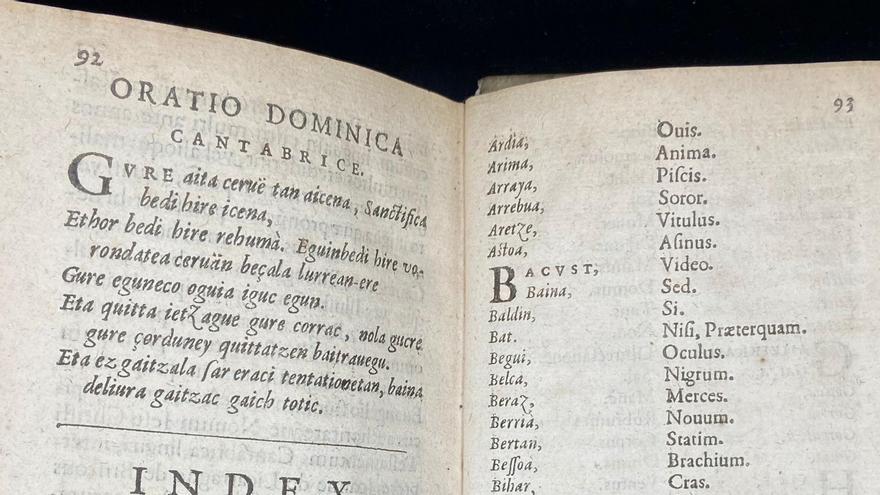 92
ORATIO DOMINICA
CANTABRICE.
GVRE aita ceruë tan aicena, Sanctifica
bedi hire icena,
Ethor bedi hire rehumà. Eguinbedi hire vo-
rondatea ceruän beçala lurrean-ere
Gure eguneco oguia iguc egun.
Eta quitta ietZague gure corrac, nola gucre
gure çorduney quittatzen baitrauegu.
Eta ez gaitzala ſar eraci tentationetan, baina
deliura gaitzac gaich totic.
INDEX
93
Ardia, Ouis.
Arima, Anima.
Arraya, Piſcis.
Arrebua, Soror.
Aretze, Vitulus.
Aſtoa, Aſinus.
BACVST, Video.
Baina, Sed.
Baldin, Si.
Bat. Niſi, Præterquam.
Begui, Oculus.
Belca, Nigrum.
Beraz, Merces.
Berria, Nouum.
Bertan, Statim.
Beſſoa, Brachium.
Bihar, Cras.